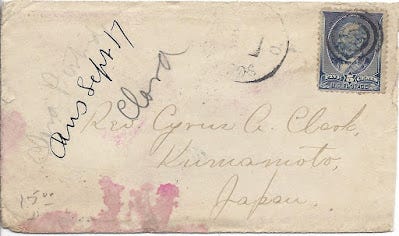 Ans Sept 17
Clara
Rev. Cyrus A. Clark,
Kumamoto,
Japan.
15 00